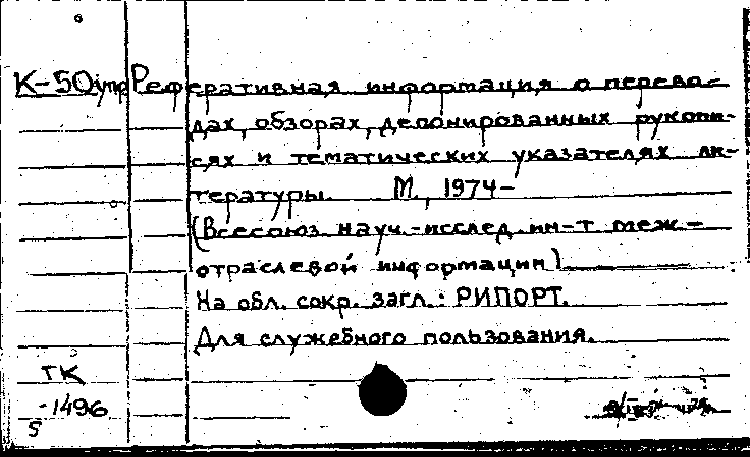 К-50 Реферативная информация о перево-
дах, обзорах, депонированных рукопи-
сях и тематических указателях ли-
тературы. М., 1974-
(Всесоюз. науч.-исслед. ин-т меж-
отраслевой информации)
На обл. сокр. загл.: РИПОРТ.
Для служебного пользования.
ТК
-1496
5